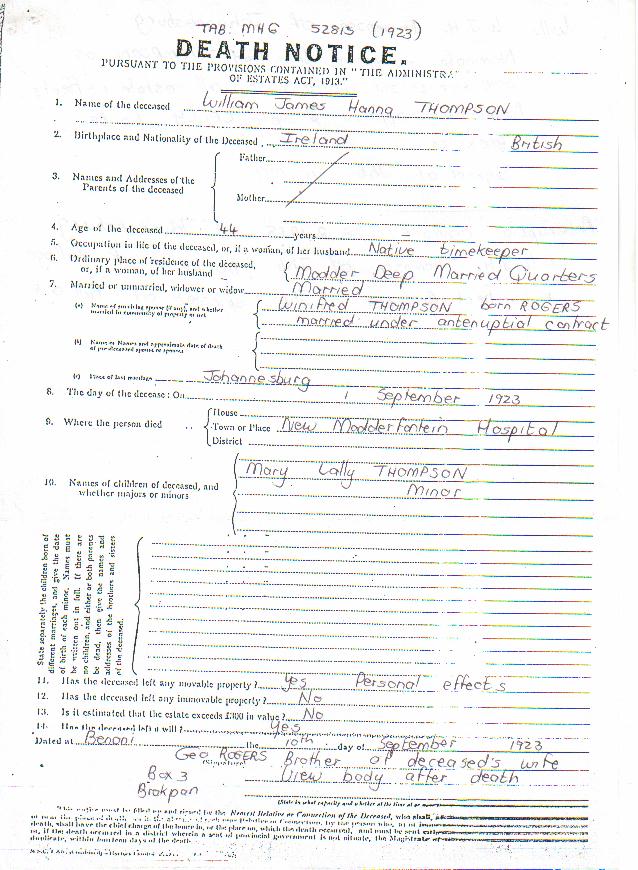 TAB MHG 52815 (1923)
DEATH NOTICE.
PURSUANT TO THE PROVISIONS CONTAINED IN "THE ADMINISTRA
OF ESTATES ACT, 1913."
1. Name of the deceased William James Hanna THOMPSON
2. Birthplace and Nationality of the Deceased Ireland British
Father
3. Names and Addresses of the
Parents of the deceased
Mother
4. Age of the deceased 44 years –
5. Occupation in life of the deceased, or, if a woman, of her husband Native timekeeper
6. Ordinary place of residence of the deceased,
or, if a woman, of her husband Modder Deep Married Quarters
7. Married or unmarried, widower or widow Married
(a) Name of surviving spouse (if any), and whether
married in community of property or not
Winifred THOMPSON born ROGERS
married under antenuptial contract
(b) Name or Names and approximate date of death
of pre-deceased spouse or spouses
(c) Place of last marriage Johannesburg
8. The day of the decease: On 1 September 1923
9. Where the person died
House
Town or Place New Modderfontein Hospital
District
10. Names of children of deceased, and
whether majors or minors
Mary Lally THOMPSON
Minor
State separately the children born of
different marriages, and give the date
of birth of each minor. Names must
be written out in full. If there are
no children, and either or both parents
be dead, then give the names and
addresses of the brothers and sisters
of the deceased.
11. Has the deceased left any movable property? Yes Personal effects
12. Has the deceased left any immovable property? No
13. Is it estimated that the estate exceeds £300 in value? No
14. Has the deceased left a will? Yes
Dated at Benoni the 10th day of September 1923
Geo ROGERS Brother of deceased's wife
(Signature)
Box 3 View body after death
Brakpan
(State in what capacity and whether at the time
This notice must be filled up and signed by the Nearest Relative or Connection of the Deceased, who shall
death, shall have the chief charge of the house in, or the place on, which the death occurred, and must be sent
or, if the death occurred in a district wherein a seat of provincial government is not situate, the Magistrate of
duplicate, within fourteen days of the death